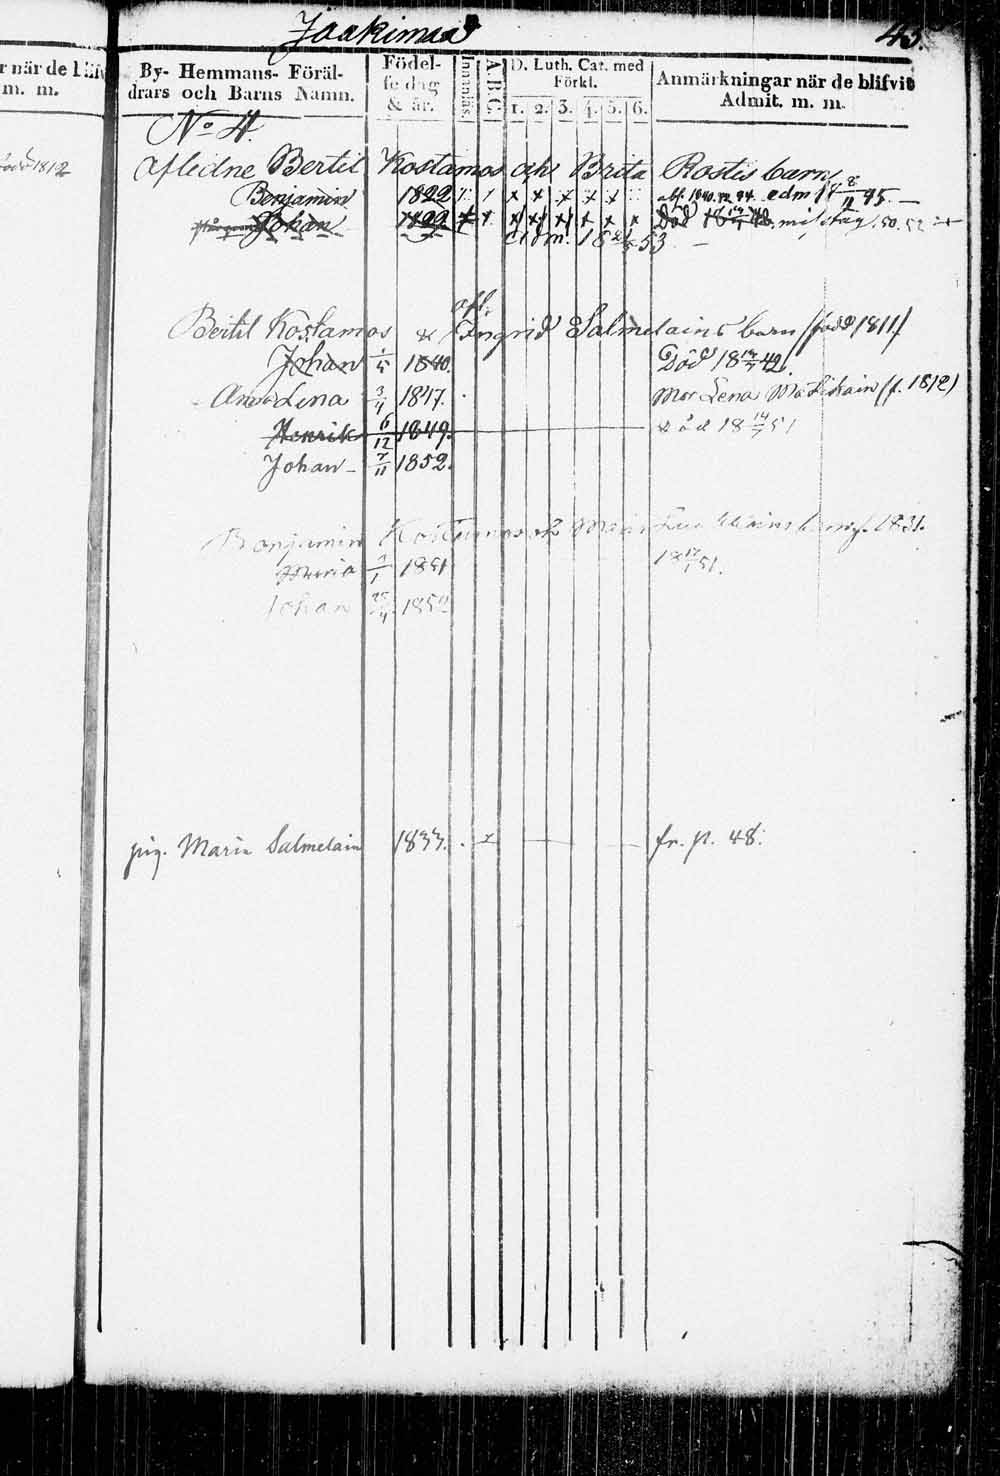 Jaakimaa
45.
r när de blifv
m. m.
född 1812
By- Hemmans- Föräl-
drars och Barns Namn.
Födel-
se dag
& år.
Innanläs.
A.B.C.
D. Luth. Cat. med
Förkl.
1. 2. 3. 4. 5. 6.
Anmärkningar när de blifvit
Admit. m. m.
No 4.
Afledne Bertil Kostamos och Brita Rostis barn
Benjamin 1822 adm 18 8/11 45. —
Johan 1822. Död misstag. 50. 52
adm. 18 53
afl.
Bertil Kostamos & Ingrid Salmelains barn (född 1811)
Johan 1/5 1840. Död 18 42.
Anna Lena 3/4 1847. Mor Lena (f. 1812)
Henrik 6/12 1849. död 18 14/7 51
Johan 7/11 1852.
Benjamin Kostamos barn f. 1831.
Maria 1/1 1851 18 17/1 51.
Johan 25/4 1852
pig. Maria Salmelain 1833. fr. p. 48.